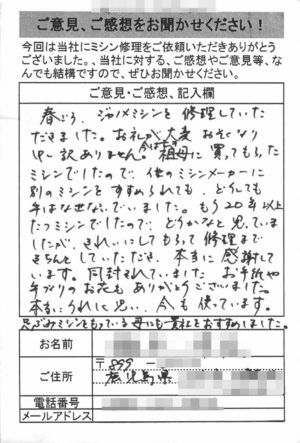 ご意見、ご感想をお聞かせください！
今回は当社にミシン修理をご依頼いただきありがとう
ございました。、当社に対する、ご感想やご意見等、な
んでも結構ですので、ぜひお聞かせください。
ご意見・ご感想、記入欄
春ごろ、ジャノメミシンを修理していた
だきました。お礼が大変おそくなり
申し訳ありません。今は亡き祖母に買ってもらった
ミシンでしたので、他のミシンメーカーに
別のミシンをすすめられても、どうしても
手ばなせないでいました。もう20年以上
たつミシンでしたので、どうかなと思ていま
したが、きれいにしてもらって修理まで
きちんとしていただき、本当に感謝して
います。同封されていました お手紙や
手づくりのお花もありがとうございました。
本当にうれしく思い、今も使っています。
足ぶみミシンをもっている母にも貴社をおすすめしました。
お名前
ご住所
〒899-
鹿児島県
電話番号
メールアドレス